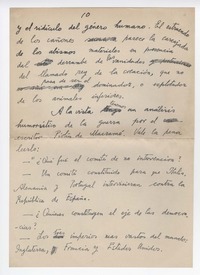 10
y el ridículo del género humano. El estruendo
de los cañones parece la carcajada
de los abismos materiales en presencia
del derrumbe de las vanidades
del llamado rey de la creación, que no
dominador, o explotador
de los animales inferiores.
A la vista tengo un análisis
humorístico de la guerra por el
escritor. Vale la pena
leerlo:
—"¿Qué fué el comité de no intervención?
— Un comité constituído para que Italia,
Alemania y Portugal intervinieran contra la
República de España.
— ¿Quiénes constituyen el eje de las democra-
cias?
— Los tres imperios mas vastos del mundo:
Inglaterra, Francia y Estados Unidos.